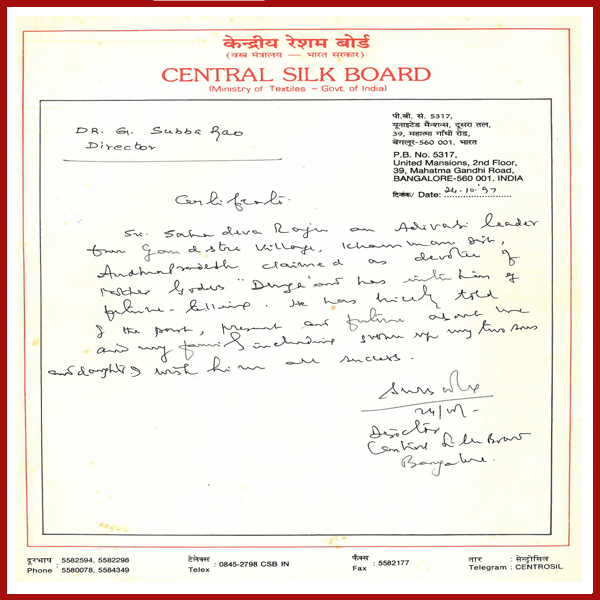 केन्द्रीय रेशम बोर्ड
(वस्त्र मंत्रालय – भारत सरकार)
CENTRAL SILK BOARD
(Ministry of Textiles – Govt. of India)
DR. G. Subba Rao
Director
पी.बी. सं. 5317,
यूनाइटेड मैन्शन्स, दूसरा तल,
39, महात्मा गाँधी रोड,
बेंगलूर-560 001. भारत
P.B. No. 5317,
United Mansions, 2nd Floor,
39, Mahatma Gandhi Road,
BANGALORE-560 001. INDIA
दिनांक/ Date: 24.10.'97
Certificate.
Sri. Sahadeva Raju an Adivasi leader
from Village, Khammam Dist,
Andhrapradesh claimed as devotee of
Mother Godess "Durga" and has of
future-telling. He has nicely told
of the past, present and future about me
and my family including my two sons
and daughter. I wish him all success.
24/10/-
Director
Central Silk Board
Bangalore.
दूरभाष : 5582594, 5582298
Phone : 5580078, 5584349
टेलेक्स
Telex : 0845-2798 CSB IN
फैक्स
Fax : 5582177
तार : सेन्ट्रोसिल
Telegram : CENTROSIL